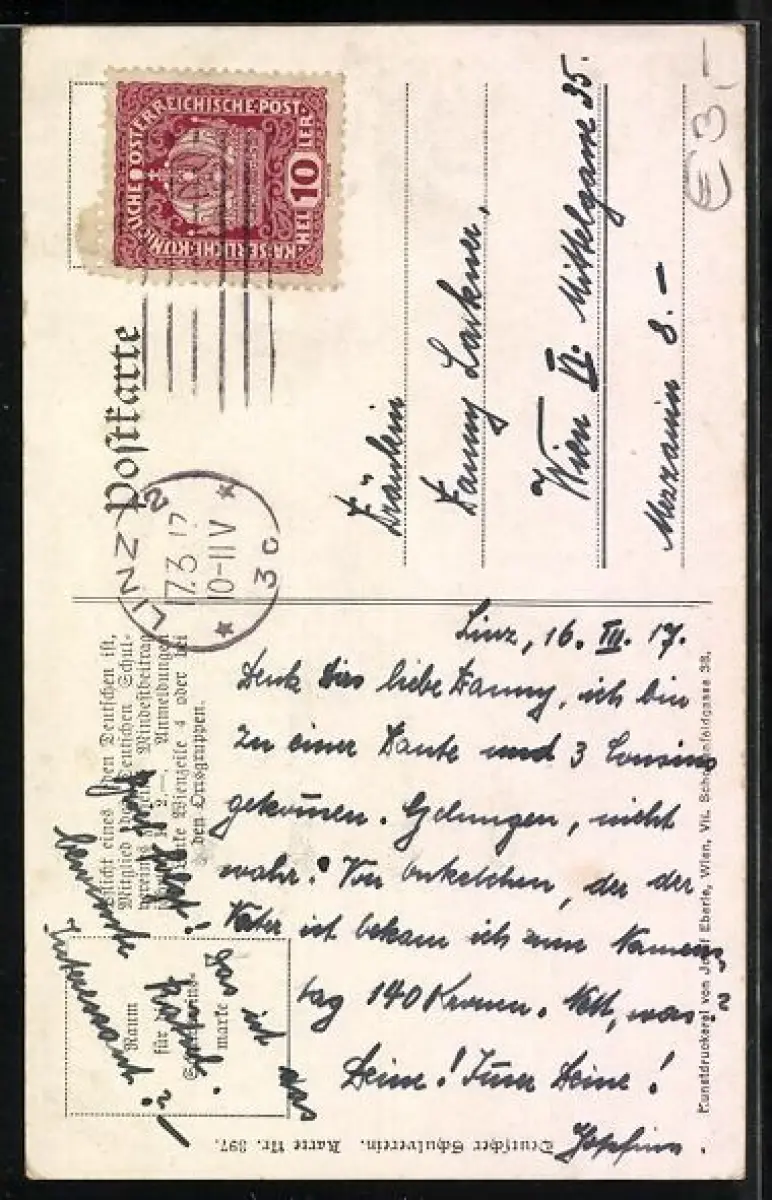 KAISERLICHE·KÖNIGLICHE ÖSTERREICHISCHE·POST
HELLER
10
€3,-
Postkarte
LINZ 2
17.3.17
10-11 V
* 3c *
Fräulein
Fanny Lackner,
Wien VI. Mittelgasse 35.
Mezzanin 8.–
Pflicht eines jeden Deutschen ist,
Mitglied des Deutschen Schul-
vereins zu sein. Mindestbeitrag
K 2.—. Anmeldungen
Linke Wienzeile 4 oder bei
den Ortsgruppen.
Linz, 16. III. 17.
Denk Dir liebe Fanny, ich bin
zu einer Tante und 3 Cousins
gekommen. Gelungen, nicht
wahr? Von Onkelchen, der der
Vater ist bekam ich zum Namens
tag 140 Kronen. Nett, was?
Deine! Immer Deine!
Das ist was
Interessant? –
Raum
für die
Schulvereins-
marke
Deutscher Schulverein. Karte Nr. 397.
Kunstdruckerei von Josef Eberle, Wien, VII. Schottenfeldgasse 38.